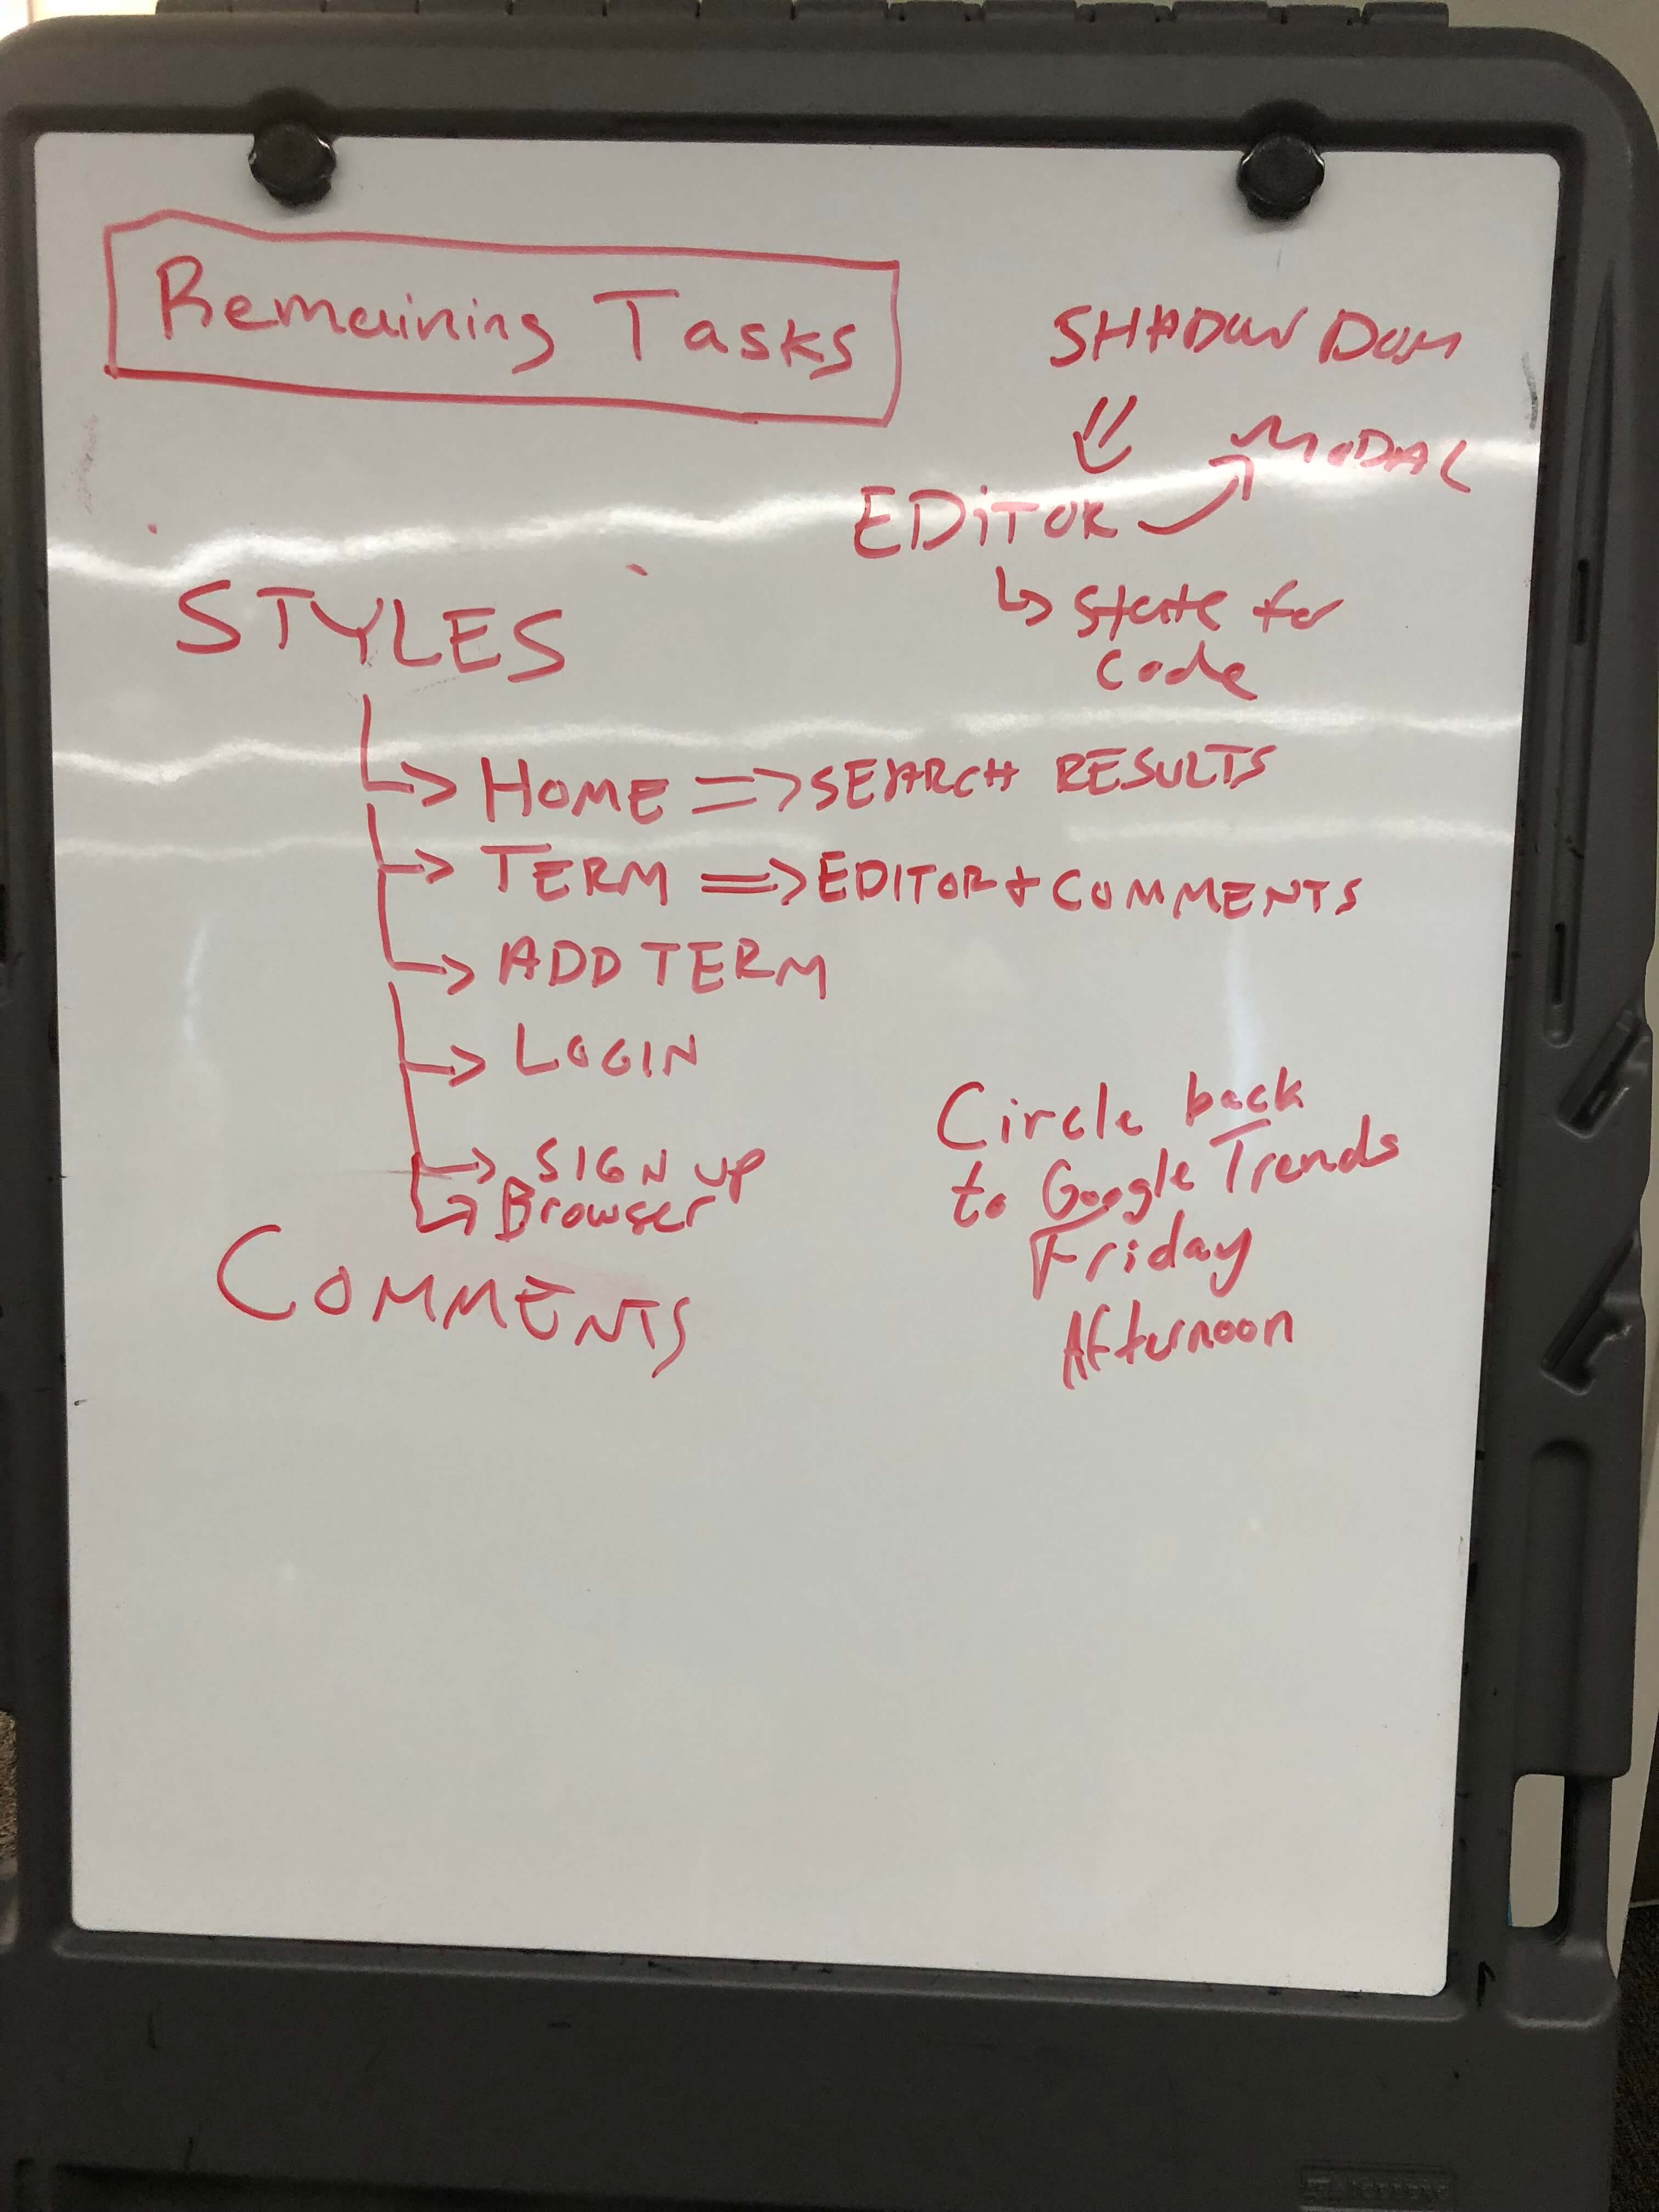 Remaining Tasks
SHADOW DOM
MODAL
EDITOR
State for
Code
STYLES
HOME => SEARCH RESULTS
TERM => EDITOR + COMMENTS
ADD TERM
LOGIN
SIGN UP
Browser
COMMENTS
Circle back
to Google Trends
Friday
Afternoon